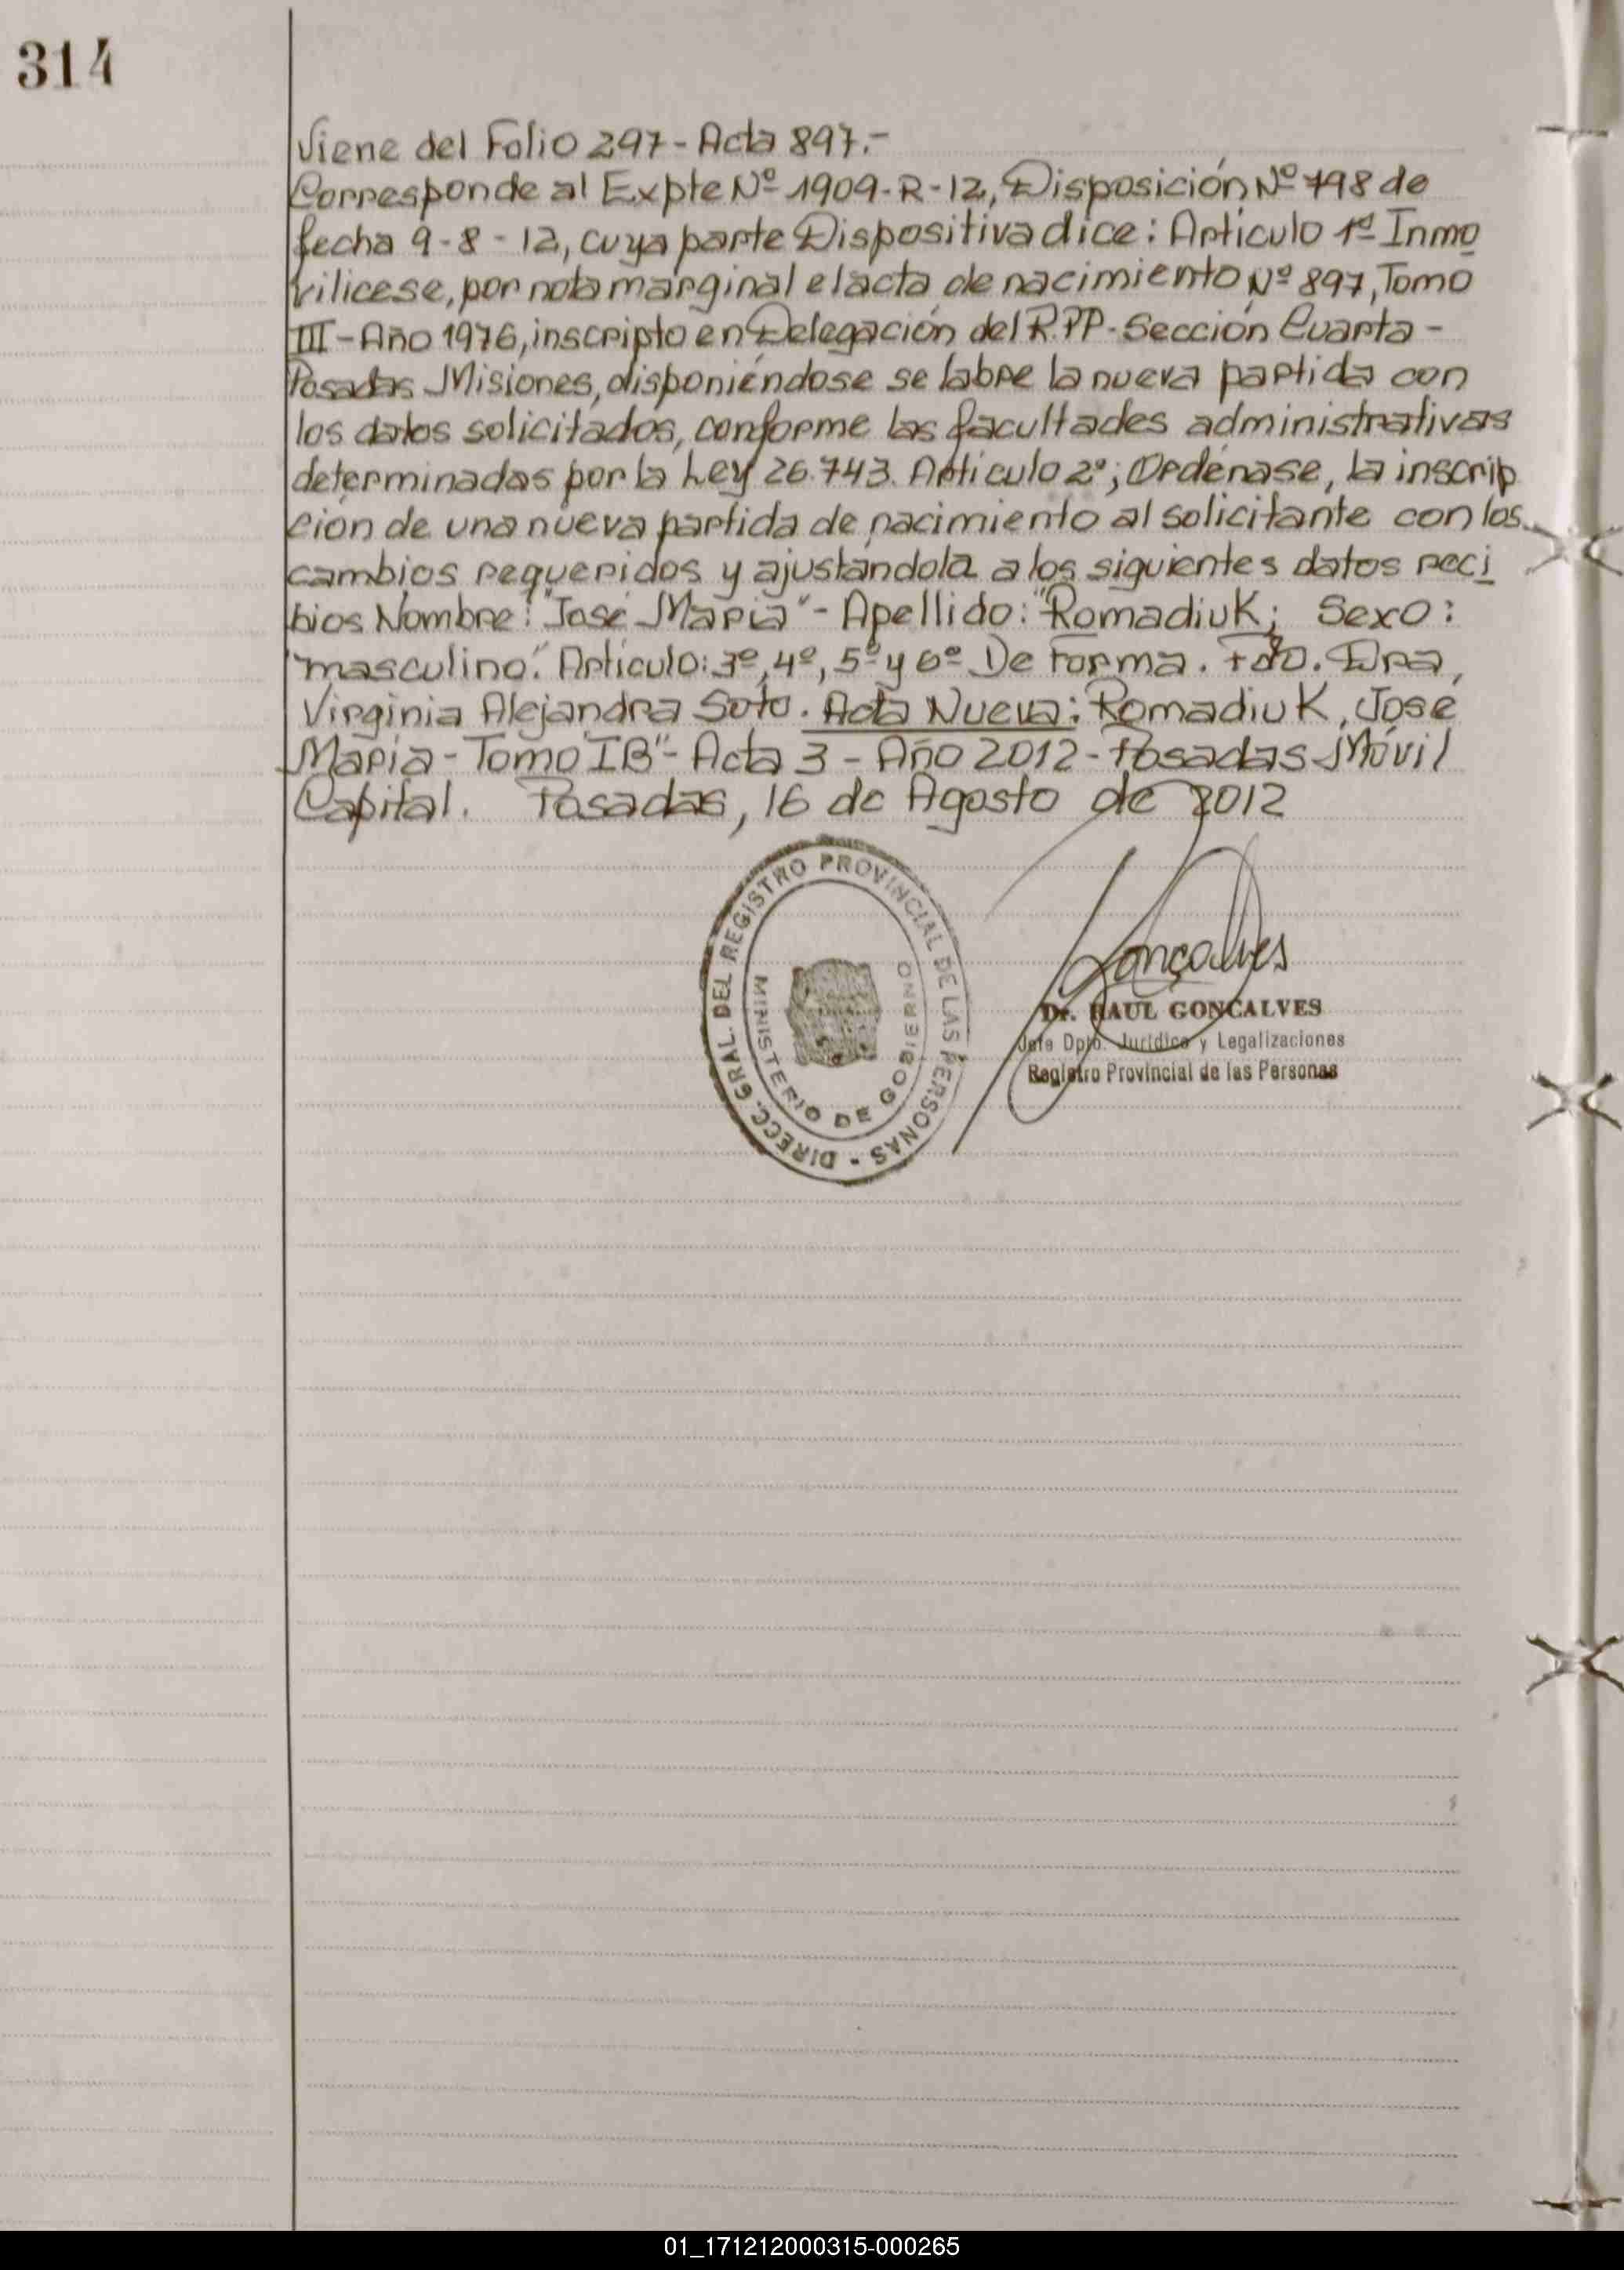 314
Viene del Folio 297 - Acta 897.-
Corresponde al Expte Nº 1909-R-12, Disposición Nº 798 de
fecha 9-8-12, cuya parte Dispositiva dice: Artículo 1º Inmo
vilicese, por nota marginal el acta de nacimiento Nº 897, Tomo
III - Año 1976, inscripto en Delegación del R.PP - Sección Cuarta -
Posadas Misiones, disponiéndose se labre la nueva partida con
los datos solicitados, conforme las facultades administrativas
determinadas por la Ley 26.743. Artículo 2º; Ordénase, la inscrip
ción de una nueva partida de nacimiento al solicitante con los
cambios requeridos y ajustándola a los siguientes datos reci
bios Nombre: "José María" - Apellido: "Romadiuk; Sexo:
"masculino". Artículo: 3º, 4º, 5º y 6º De Forma. Fdo. Dra,
Virginia Alejandra Soto. Acta Nueva: Romadiuk, José
María - Tomo "IB" - Acta 3 - Año 2012 - Posadas Móvil
Capital. Posadas, 16 de Agosto de 2012
DIRECC. GRAL. DEL REGISTRO PROVINCIAL DE LAS PERSONAS -
MINISTERIO DE GOBIERNO
Gonçalves
Dr. RAUL GONCALVES
Jefe Dpto. Jurídico y Legalizaciones
Registro Provincial de las Personas
01_171212000315-000265